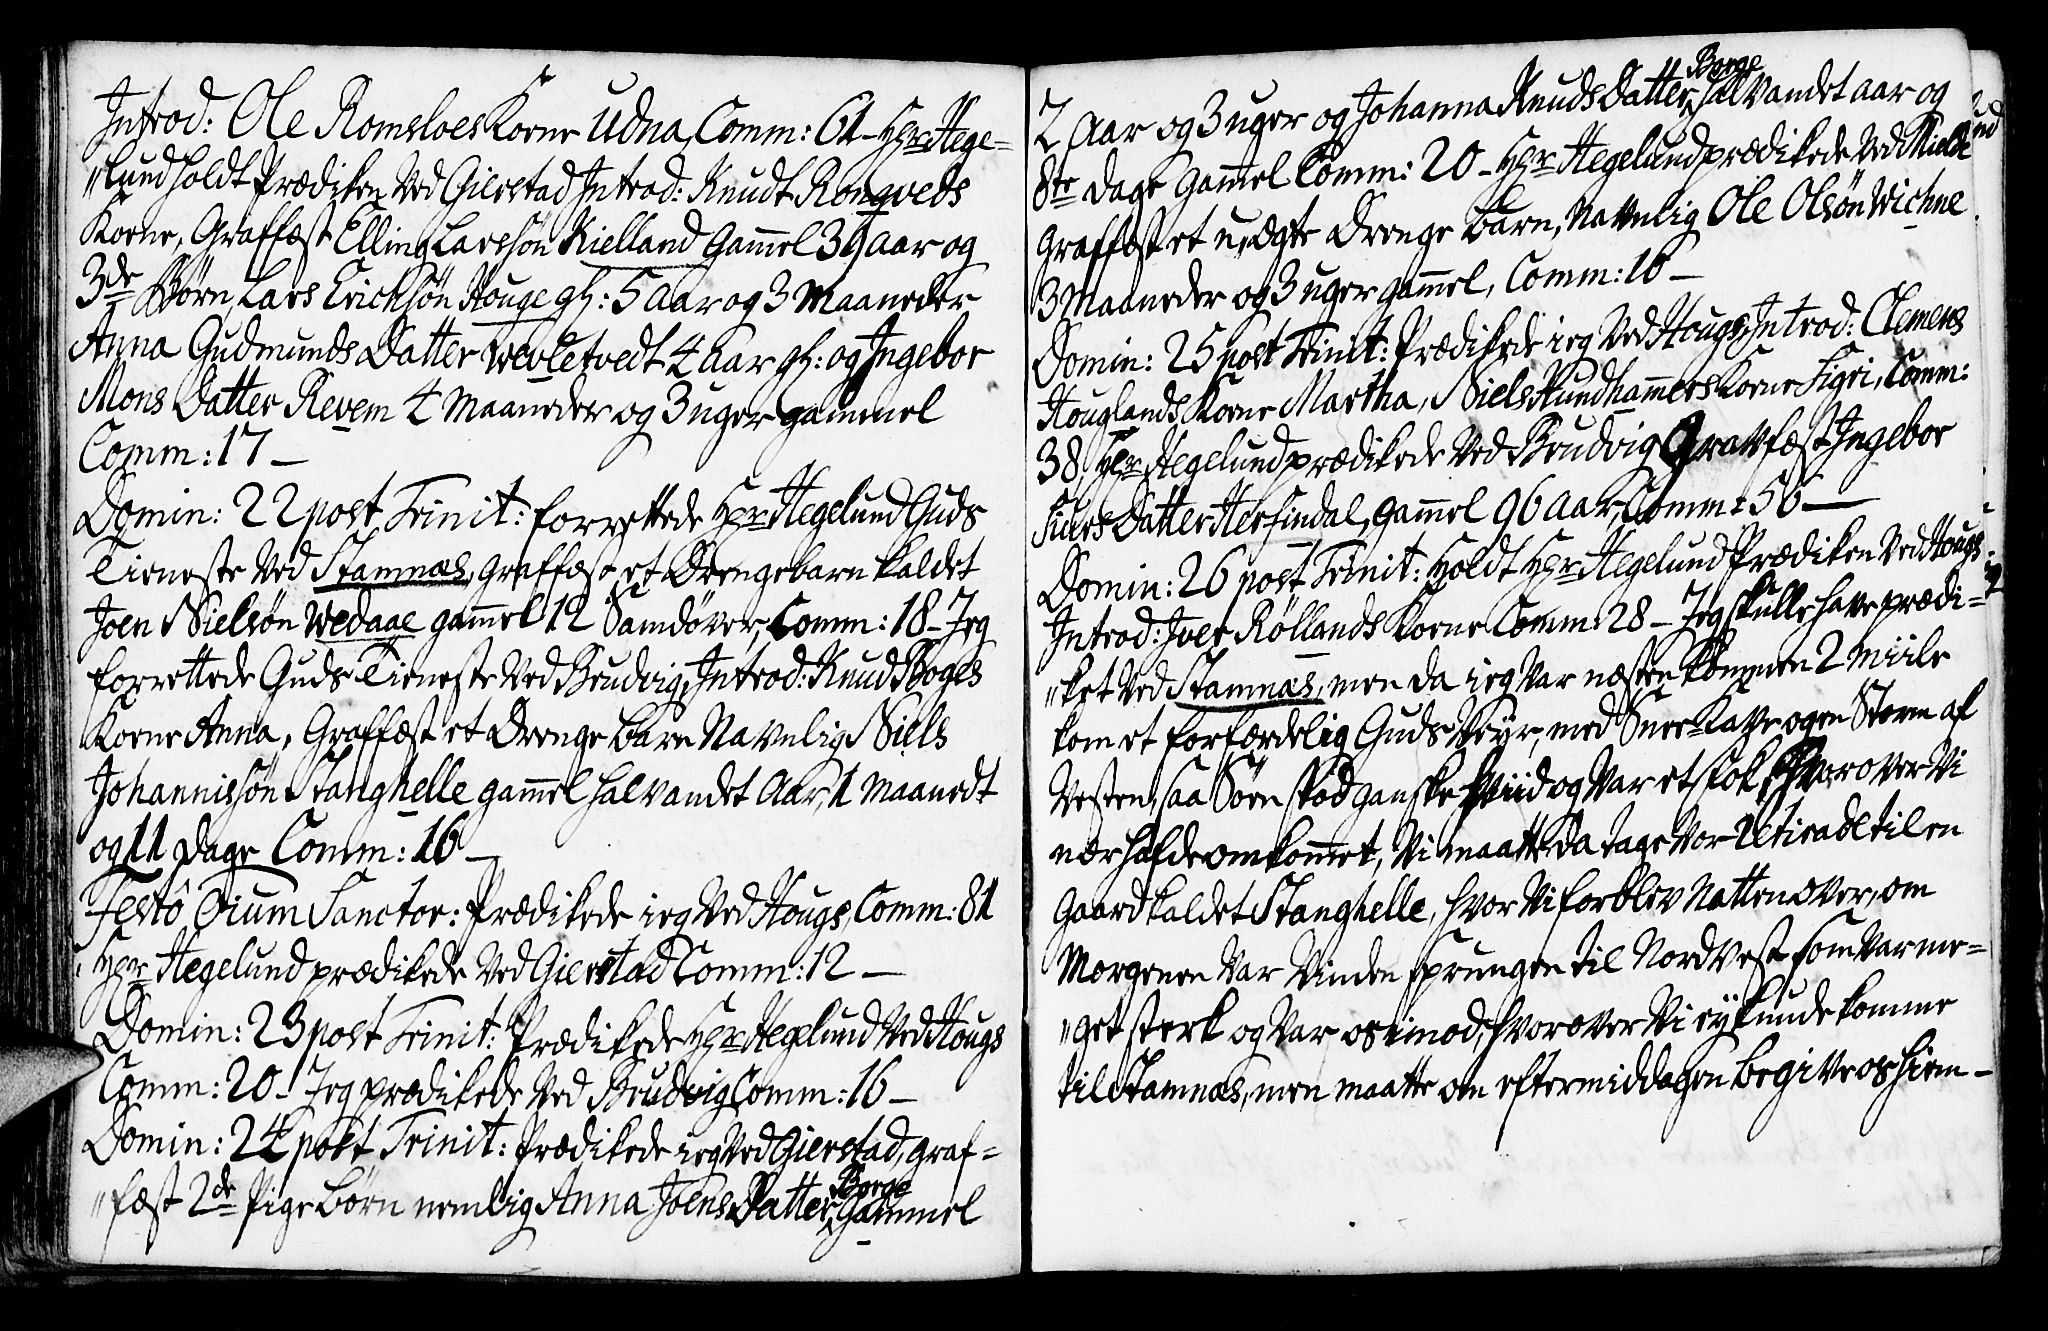 Introd: Ole Romsloes Kone Udna, Comm: 61 - Hr Hege=
"lund holdt Prædiken Ved Gierstad Introd: Knudt Rongveds
Kone, Graffæst Elling Larssøn Kielland Gammel 39 Aar og
3de Børn, Lars Erichsøn Houge gl: 5 Aar og 3 Maaneder
Anna Gudmunds Datter Wevletvedt 4 Aar gl: og Ingebor
Mons Datter Revem 4 Maaneder og 3 uger gammel
Comm: 17 -
Domin: 22 post Trinit: forrettede Hr Hegelund Guds
Tieneste Ved Stamnæs, Graffæst et Drengebarn kaldet
Joen Nielsøn Wedaae gammel 12 Samdøver, Comm: 18 - Jeg
forrettede Guds Tieneste Ved Brudvig, Introd: Knud Boges
Kone Anna, Graffæst et Drenge barn Navnlig Niels
Johannissøn Stanghelle gammel halvandet Aar, 1 Maanedt
og 11 Dage Comm: 16 -
Festo Oium Sanctor: Prædikede ieg Ved Hougs, Comm: 81
Hr Hegelund prædikede Ved Gierstad Comm: 12 -
Domin: 23 post Trinit: Prædikede Hr Hegelund Ved Hougs
Comm: 20 - Jeg prædikede Ved Brudvig Comm: 16 -
Domin: 24 post Trinit: Prædikede ieg Ved Gierstad, Graf=
"fæst 2de Pige børn nemlig Anna Joens Datter Borge Gammel
2 Aar og 3 uger og Johanna Knuds Datter Borge halvandet aar og
8te Dage Gammel Comm: 20 - Hr Hegelund prædikede Ved
Graffæst et u,ægte Drenge barn, Navnlig Ole Olsøn Wichne
3 Maaneder og 3 uger gammel, Comm: 16 -
Domin: 25 post Trinit: Prædikede ieg Ved Hougs, Introd: Clemens
Houglands Kone Martha, Niels Kundhammers Kone Sigri, Comm:
38, Hr Hegelund prædikede Ved Brudvig Gravfæst Ingebor
Siurs Datter Hersindal, Gammel 96 Aar, Comm: 56 -
Domin: 26 post Trinit: Holdt Hr Hegelund Prædiken Ved Hougs
Introd: Iver Røllands Kone Comm: 28 - Jeg skulle have prædi=
"ket Ved Stamnæs, men da ieg Var næsten kommen 2 Miile
kom et forfærdelig Guds Veyr, med Snee Kave og en Storm af
Vesten, saa Søen stod ganske hviid og Var et Fok, Hvorover Vi
nær hafde omkommet, Vi maatte da tage Vor Retirade til en
Gaard kaldet Stanghelle, hvor Vi forblev Natten over, om
Morgenen Var Vinden sprungen til Nord Vest som Var me=
"get sterk og Var os imod, hvorover Vi ey kunde komme
til Stamnæs, men maatte om eftermiddagen begive os hiem -